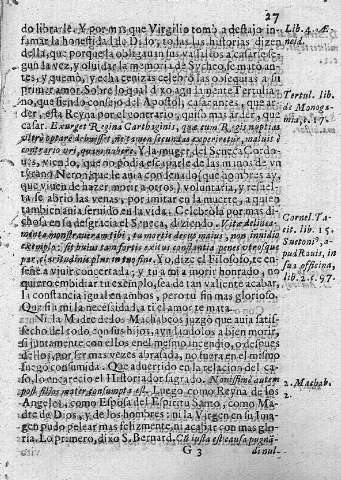 27
do librarlé. Y por mas que Virgilio tomò a destajo in-
famar la honestidad de Dido, todas las historias dizen
della, que porque la obligauan sus vasallos a casarse se-
gunda vez, y oluidar la memoria de Sycheo, se mato an-
tes, y quemò, y echa cenizas celebrò las obsequias a su
primer amor. Sobre lo qual dixo aqui auiente Tertulia-
no, que siendo consejo del Apostol, casarances, que ar-
der, esta Reyna por el contrario, quiso mas arder, que
casar. Exurget Regina Carthaginis, que cum Regis nuptias
vltro optare debuisset ne tamen secundas experiretur, maluit è
contrario vri, quam nubere. Y la muger del Seneca Cordo-
ues, viendo, que no podia escaparle de las manos de vn
tyrano Neron, que le auia condenado (que hombres ay,
que viuen de hazer morir a otros) voluntaria, y resuel-
ta le abrio las venas, por imitar en la muerte, a quien
tambien auia seruido en la vida. Celebròla por mas di-
chosa en su desgracia el Seneca, diziendo. Vitæ
tibi, tu mortis decus mauis, non inuidio
exemplo: sit huius tam fortis exitus constantia penes vtrosque
par, claritudinis plus in tuo fine. Yo, dize el Filosofo, te en-
señe a viuir concertada; y tu a mi a morir honrado, no
quiero embidiar tu exemplo, sea de tan valiente acabar,
la constancia igual en ambos, pero tu fin mas glorioso.
Que si a mi la necesidad, a ti el amor te mata.
Ni la Madre de los Machabeos juzgò que auia satis-
fecho del todo, con sus hijos, ayudandolos a bien morir,
si juntamente con ellos en el mesmo incendio, o despues
dellos, por ser mas vezes abrasada, no fuera en el mismo
fuego consumida. Que aduertido en la relacion del ca-
so, lo encarecio el Historiador sagrado. Nouissimè autem
post filios mater consumpta est. Luego como Reyna de los
Angeles, como Esposa del Espiritu Santo, como Ma-
dre de Dios, y de los hombres: ni la Virgen en su Ima-
gen pudo pelear mas felizmente, ni acabar con mas glo-
ria. Lo primero, dixo S. Bernard. Cū iusta est causa pugnā
G 3 di nul-
Lib. 4. Æ
neid.
Tertul. lib.
de Monoga-
mia, c. 17.
Cornel. Ta-
cit. lib. 15.
Sueton. ap
in
sua officina,
lib. 2. c. 97.
2. Machab.
2.